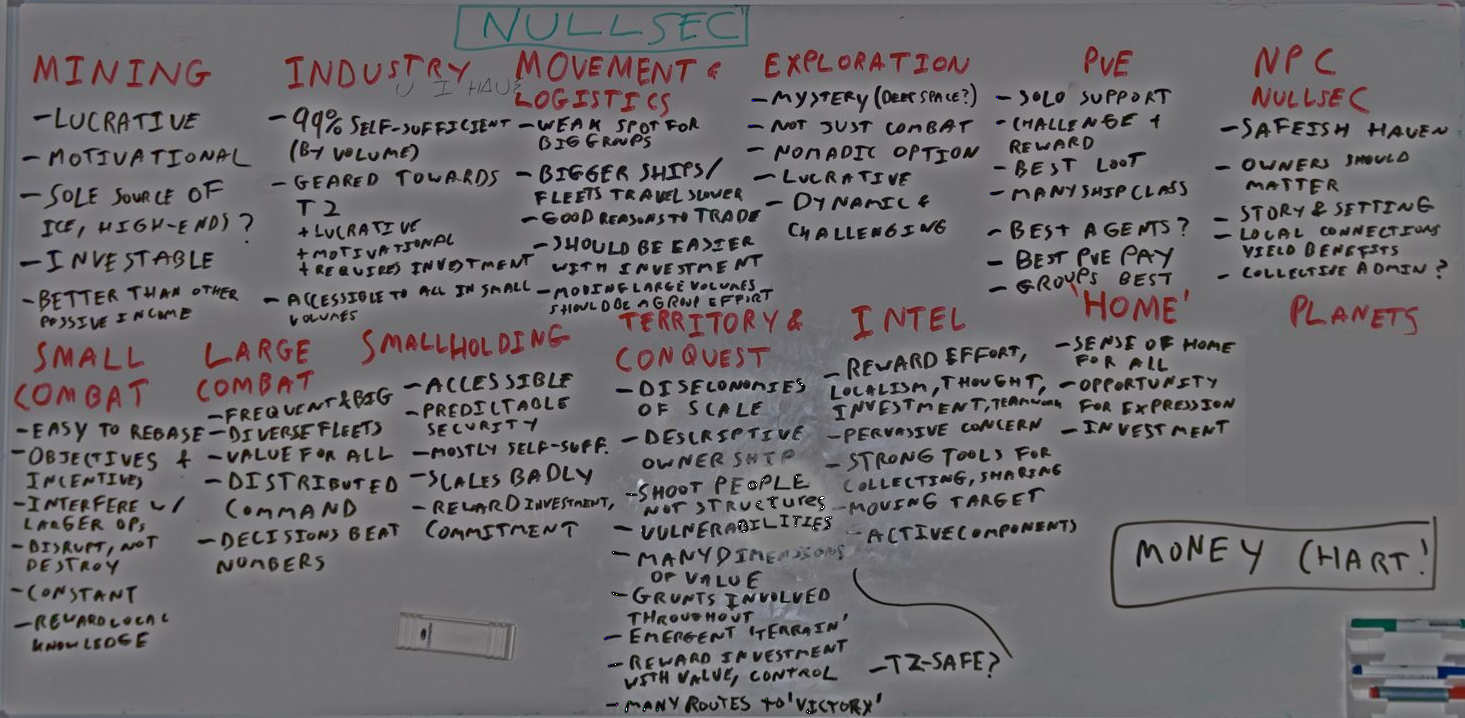 NULLSEC
MINING
- LUCRATIVE
- MOTIVATIONAL
- SOLE SOURCE OF
ICE, HIGH-ENDS?
- INVESTABLE
- BETTER THAN OTHER
PASSIVE INCOME
INDUSTRY
- 99% SELF-SUFFICIENT
(BY VOLUME)
- GEARED TOWARDS
T2
+ LUCRATIVE
+ MOTIVATIONAL
+ REQUIRES INVESTMENT
- ACCESSIBLE TO ALL IN SMALL
VOLUMES
MOVEMENT &
LOGISTICS
- WEAK SPOT FOR
BIG GROUPS
- BIGGER SHIPS/
FLEETS TRAVEL SLOWER
- GOOD REASONS TO TRADE
- SHOULD BE EASIER
WITH INVESTMENT
- MOVING LARGE VOLUMES
SHOULD BE A GROUP EFFORT
EXPLORATION
- MYSTERY (DEEP SPACE?)
- NOT JUST COMBAT
- NOMADIC OPTION
- LUCRATIVE
- DYNAMIC &
CHALLENGING
PVE
- SOLO SUPPORT
- CHALLENGE +
REWARD
- BEST LOOT
- MANY SHIP CLASS
- BEST AGENTS?
- BEST PVE PAY
- GROUPS BEST
NPC
NULLSEC
- SAFEISH HAVEN
- OWNERS SHOULD
MATTER
- STORY & SETTING
- LOCAL CONNECTIONS
YIELD BENEFITS
- COLLECTIVE ADMIN?
SMALL
COMBAT
- EASY TO REBASE
- OBJECTIVES +
INCENTIVES
- INTERFERE W/
LARGER OPS
- DISRUPT, NOT
DESTROY
- CONSTANT
- REWARD LOCAL
KNOWLEDGE
LARGE
COMBAT
- FREQUENT & BIG
- DIVERSE FLEETS
- VALUE FOR ALL
- DISTRIBUTED
COMMAND
- DECISIONS BEAT
NUMBERS
SMALLHOLDING
- ACCESSIBLE
- PREDICTABLE
SECURITY
- MOSTLY SELF-SUFF.
- SCALES BADLY
- REWARD INVESTMENT,
COMMITMENT
TERRITORY &
CONQUEST
- DISECONOMIES
OF SCALE
- DESCRIPTIVE
OWNERSHIP
- SHOOT PEOPLE
NOT STRUCTURES
- VULNERABILITIES
- MANY DIMENSIONS
OF VALUE
- GRUNTS INVOLVED
THROUGHOUT
- EMERGENT 'TERRAIN'
- REWARD INVESTMENT
WITH VALUE, CONTROL
- MANY ROUTES TO 'VICTORY'
INTEL
- REWARD EFFORT,
LOCALISM, THOUGHT,
INVESTMENT, TEAMWORK
- PERVASIVE CONCERN
- STRONG TOOLS FOR
COLLECTING, SHARING
- MOVING TARGET
- ACTIVE COMPONENTS
- TZ-SAFE?
'HOME'
- SENSE OF HOME
FOR ALL
- OPPORTUNITY
FOR EXPRESSION
- INVESTMENT
PLANETS
MONEY CHART!